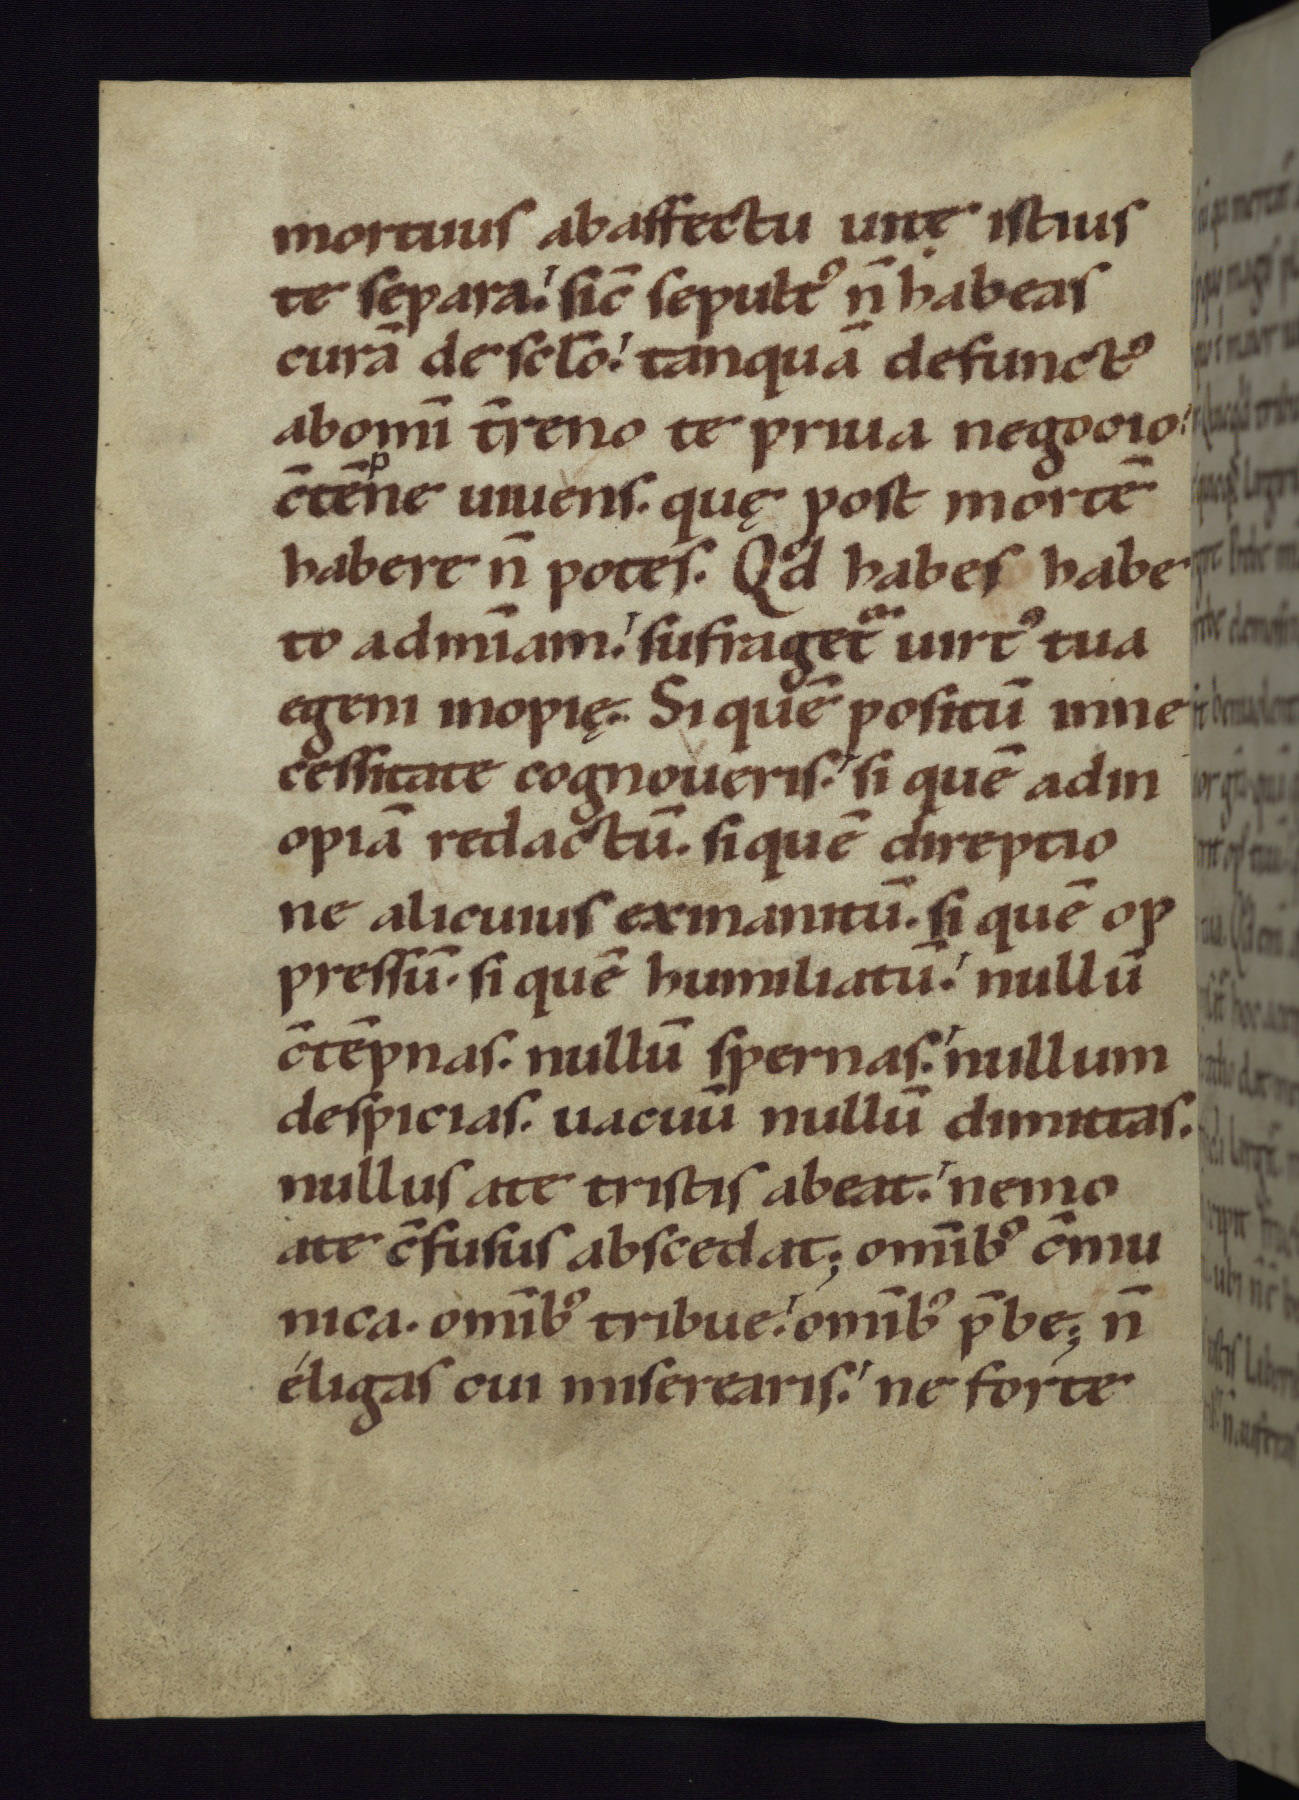 mortuus ab affectu uitę istius
te separa. sic̄ sepult᷒ n̄ habeas
curā de sclō. tanquā defunct᷒
ab omī t̄reno te priua negocio.
c̄tēpne uiuens. quę post mortē
habere n̄ potes. Qd̊ habes habe
to ad mīam. sufraget᷑ uirt᷒ tua
egeni inopię. Si quē positū in ne
cessitate cognoueris. si quē ad in
opiā redactū. si quē direptio
ne alicuius exinanitū. si quē op
pressū. si quē humiliatū. nullū
c̄tēpnas. nullū spernas. nullum
despicias. uacuū nullū dimittas.
nullus a te tristis abeat. nemo
a te c̄fusus abscedat; omīb᷒ c̄mu
nica. omīb᷒ tribue. omīb᷒ p̄be; n̄
éligas cui miserearis. ne forte